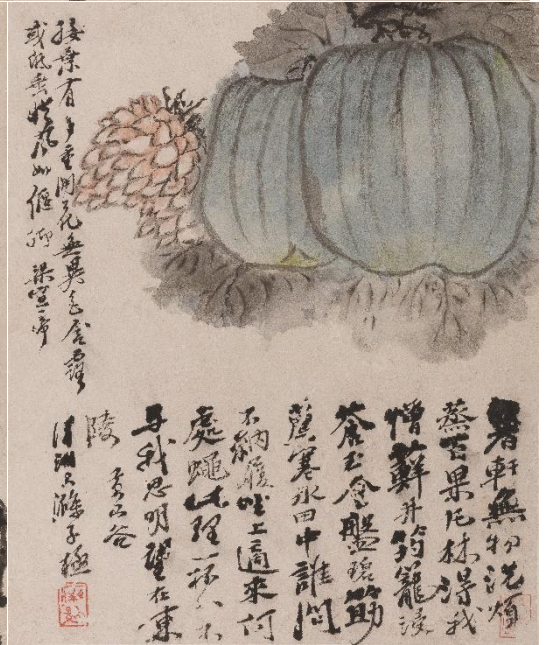 暑軒無物洗煩
蒸百果凡材得我
憎蘚井筠籠浸
蒼玉金盤碧筯
薦寒冰田中誰問
不納履坐上適來何
處蠅此理一杯分付
與我思明哲在東
陵 黃山谷
清湘大滌子極
接葉有多重開花無異色含露
或低垂從風時偃仰 梁宣帝